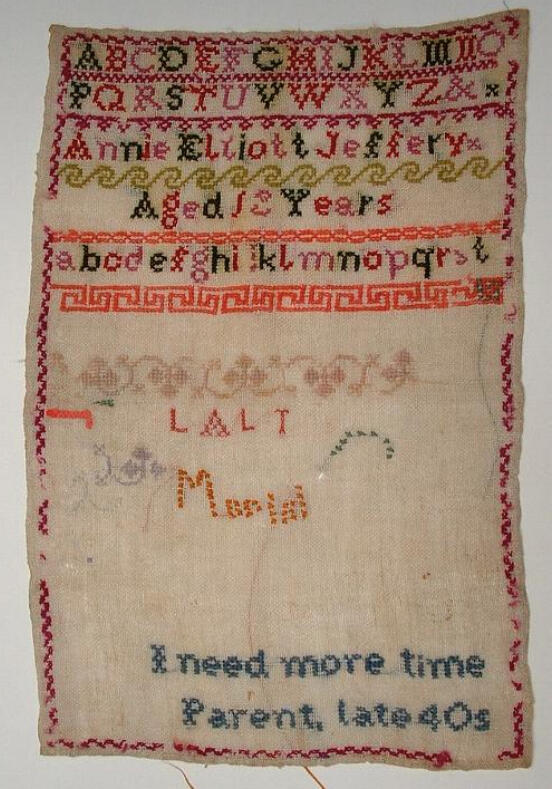 ABCDEFGHIJKLMNO
PQRSTUVWXYZ&
Annie Elliott Jeffery
Aged 12 Years
abcdefghijklmnopqrst
LALT
I need more time
Parent, late 40s